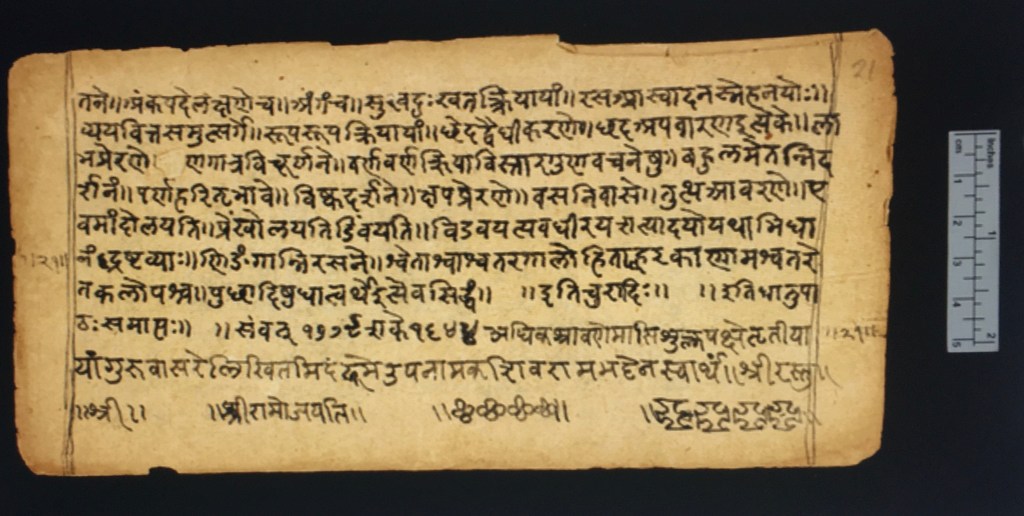 तने॥ अंक पदे लक्षणे च॥ अंग च॥ सुख दुःख तत्क्रियायां॥ रस आस्वादनस्नेहनयोः॥
व्ययवित्तसमुत्सर्गे॥ रूप रूपक्रियायां॥ छेद द्वैधीकरणे॥ छद अपवारण इत्येके॥ ला
भ प्रेरणे॥ व्रण गात्रविचूर्णने॥ वर्ण वर्णक्रियाविस्तारगुणवचनेषु॥ बहुलमेतन्निद
र्शनं॥ पर्ण हरितभावे॥ विष्क दर्शने॥ क्षप प्रेरणे॥ वस निवासे॥ तुत्थ आवरणे॥ ए
वमांदोलयति॥ प्रेंखोलयति डिंबयति॥ विडंबयत्यवधीरयत्यादयो यथाभिधा
नं द्रष्टव्याः॥ णिङंगान्निरसने॥ श्वेताश्वाश्वतरगालोडिताह्वरकाणामश्वतरे
तकलोपश्च॥ पुच्छादिषु धात्वर्थ इत्येव सिद्धं॥ ॥ इति चुरादिः॥ ॥ इति धातुपा
ठः समाप्तः॥ ॥ संवत् १७७९ शके १६४४ अधिक श्रावणे मासि शुक्लपक्षे तृतीया
यां गुरुवासरे लिखितमिदं उपनामक शिवरामभट्टेन स्वार्थं॥ श्रीरस्तु॥
॥श्री॥ ॥श्रीरामो जयति॥
21
॥२१॥
inches
cm
1
2